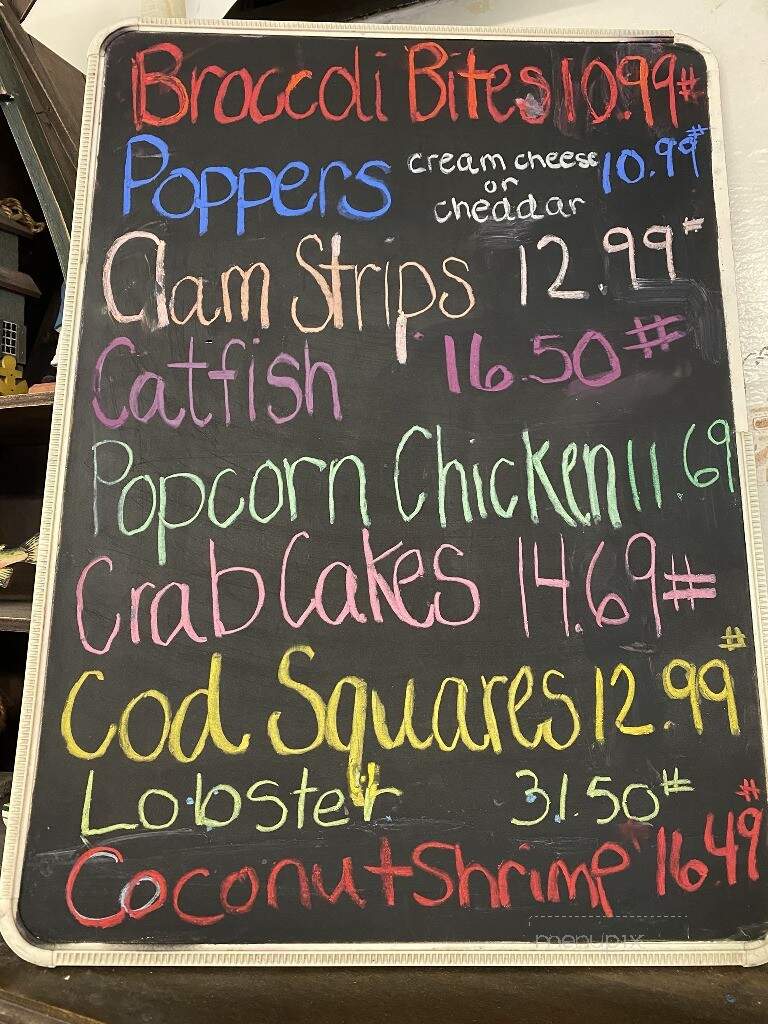 Broccoli Bites 10.99#
Poppers cream cheese or cheddar 10.99#
Clam Strips 12.99#
Catfish 16.50#
Popcorn Chicken 11.69
Crab Cakes 14.69#
Cod Squares 12.99#
Lobster 31.50#
Coconut Shrimp 16.49#
menupix